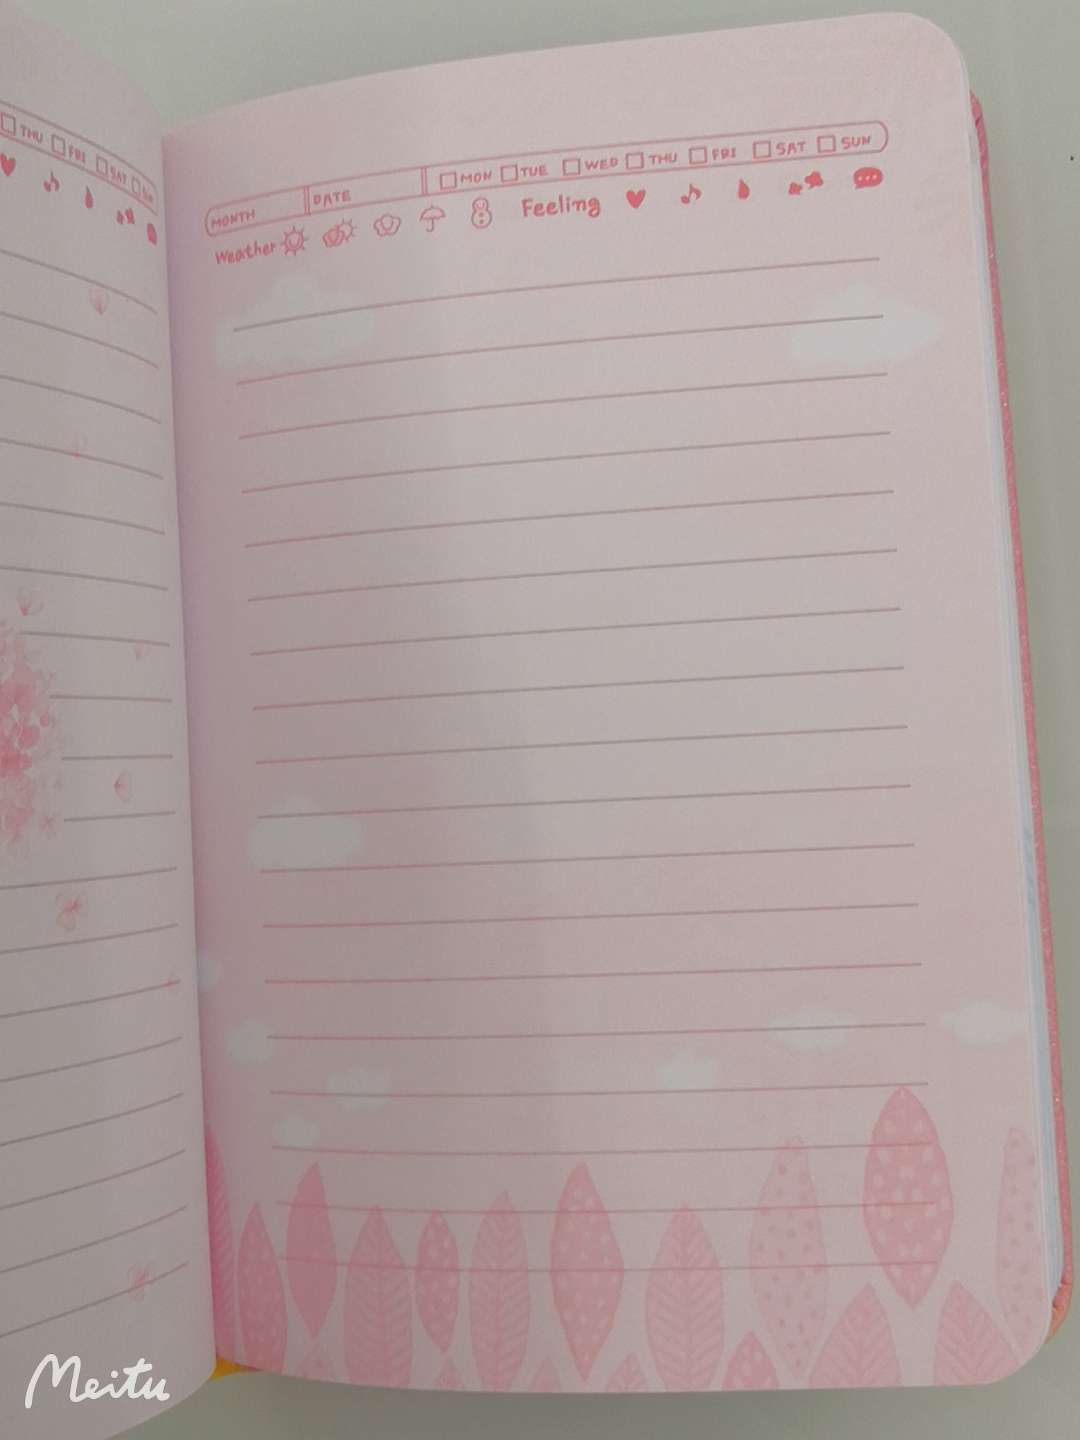 THU FRI SAT SUN
MONTH DATE MON TUE WED THU FRI SAT SUN
Weather Feeling
Meitu